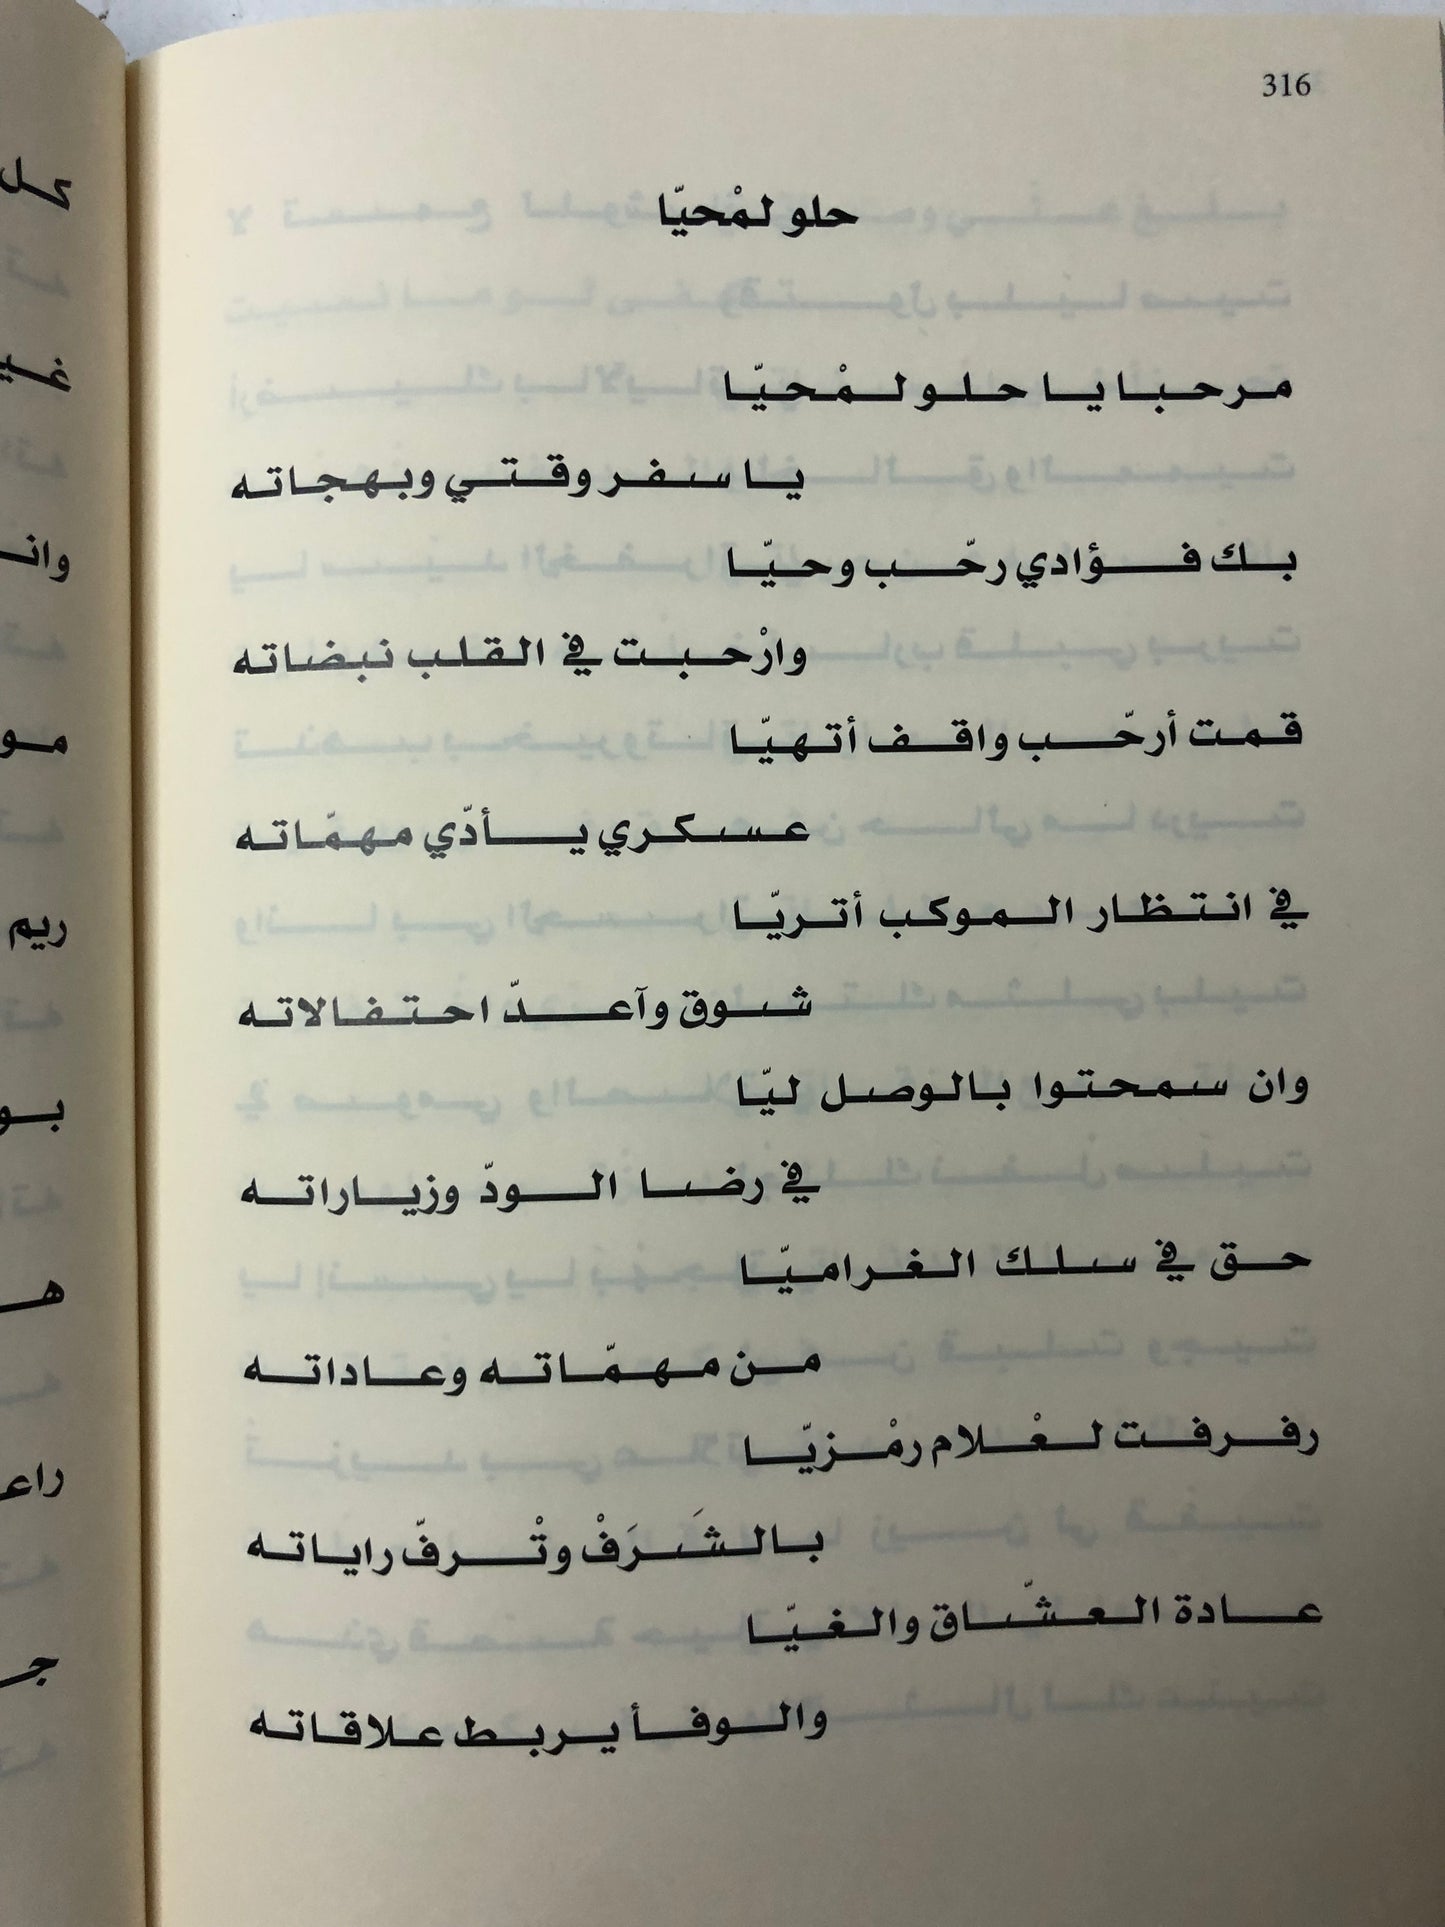 316
حلو لمْحيّا
مرحبا يا حلو لمْحيّا
يا سفر وقتي وبهجاته
بك فؤادي رحّب وحيّا
وارْحبت في القلب نبضاته
قمت أرحّب واقف أتهيّا
عسكري يأدّي مهمّاته
في انتظار الموكب أتريّا
شوق وآعدّ احتفالاته
وان سمحتوا بالوصل ليّا
في رضا الودّ وزياراته
حق في سلك الغراميّا
من مهمّاته وعاداته
رفرفت لعْلام رمْزيّا
بالشَرَفْ وتْرفّ راياته
عادة العشّاق والغيّا
والوفأ يربط علاقاته